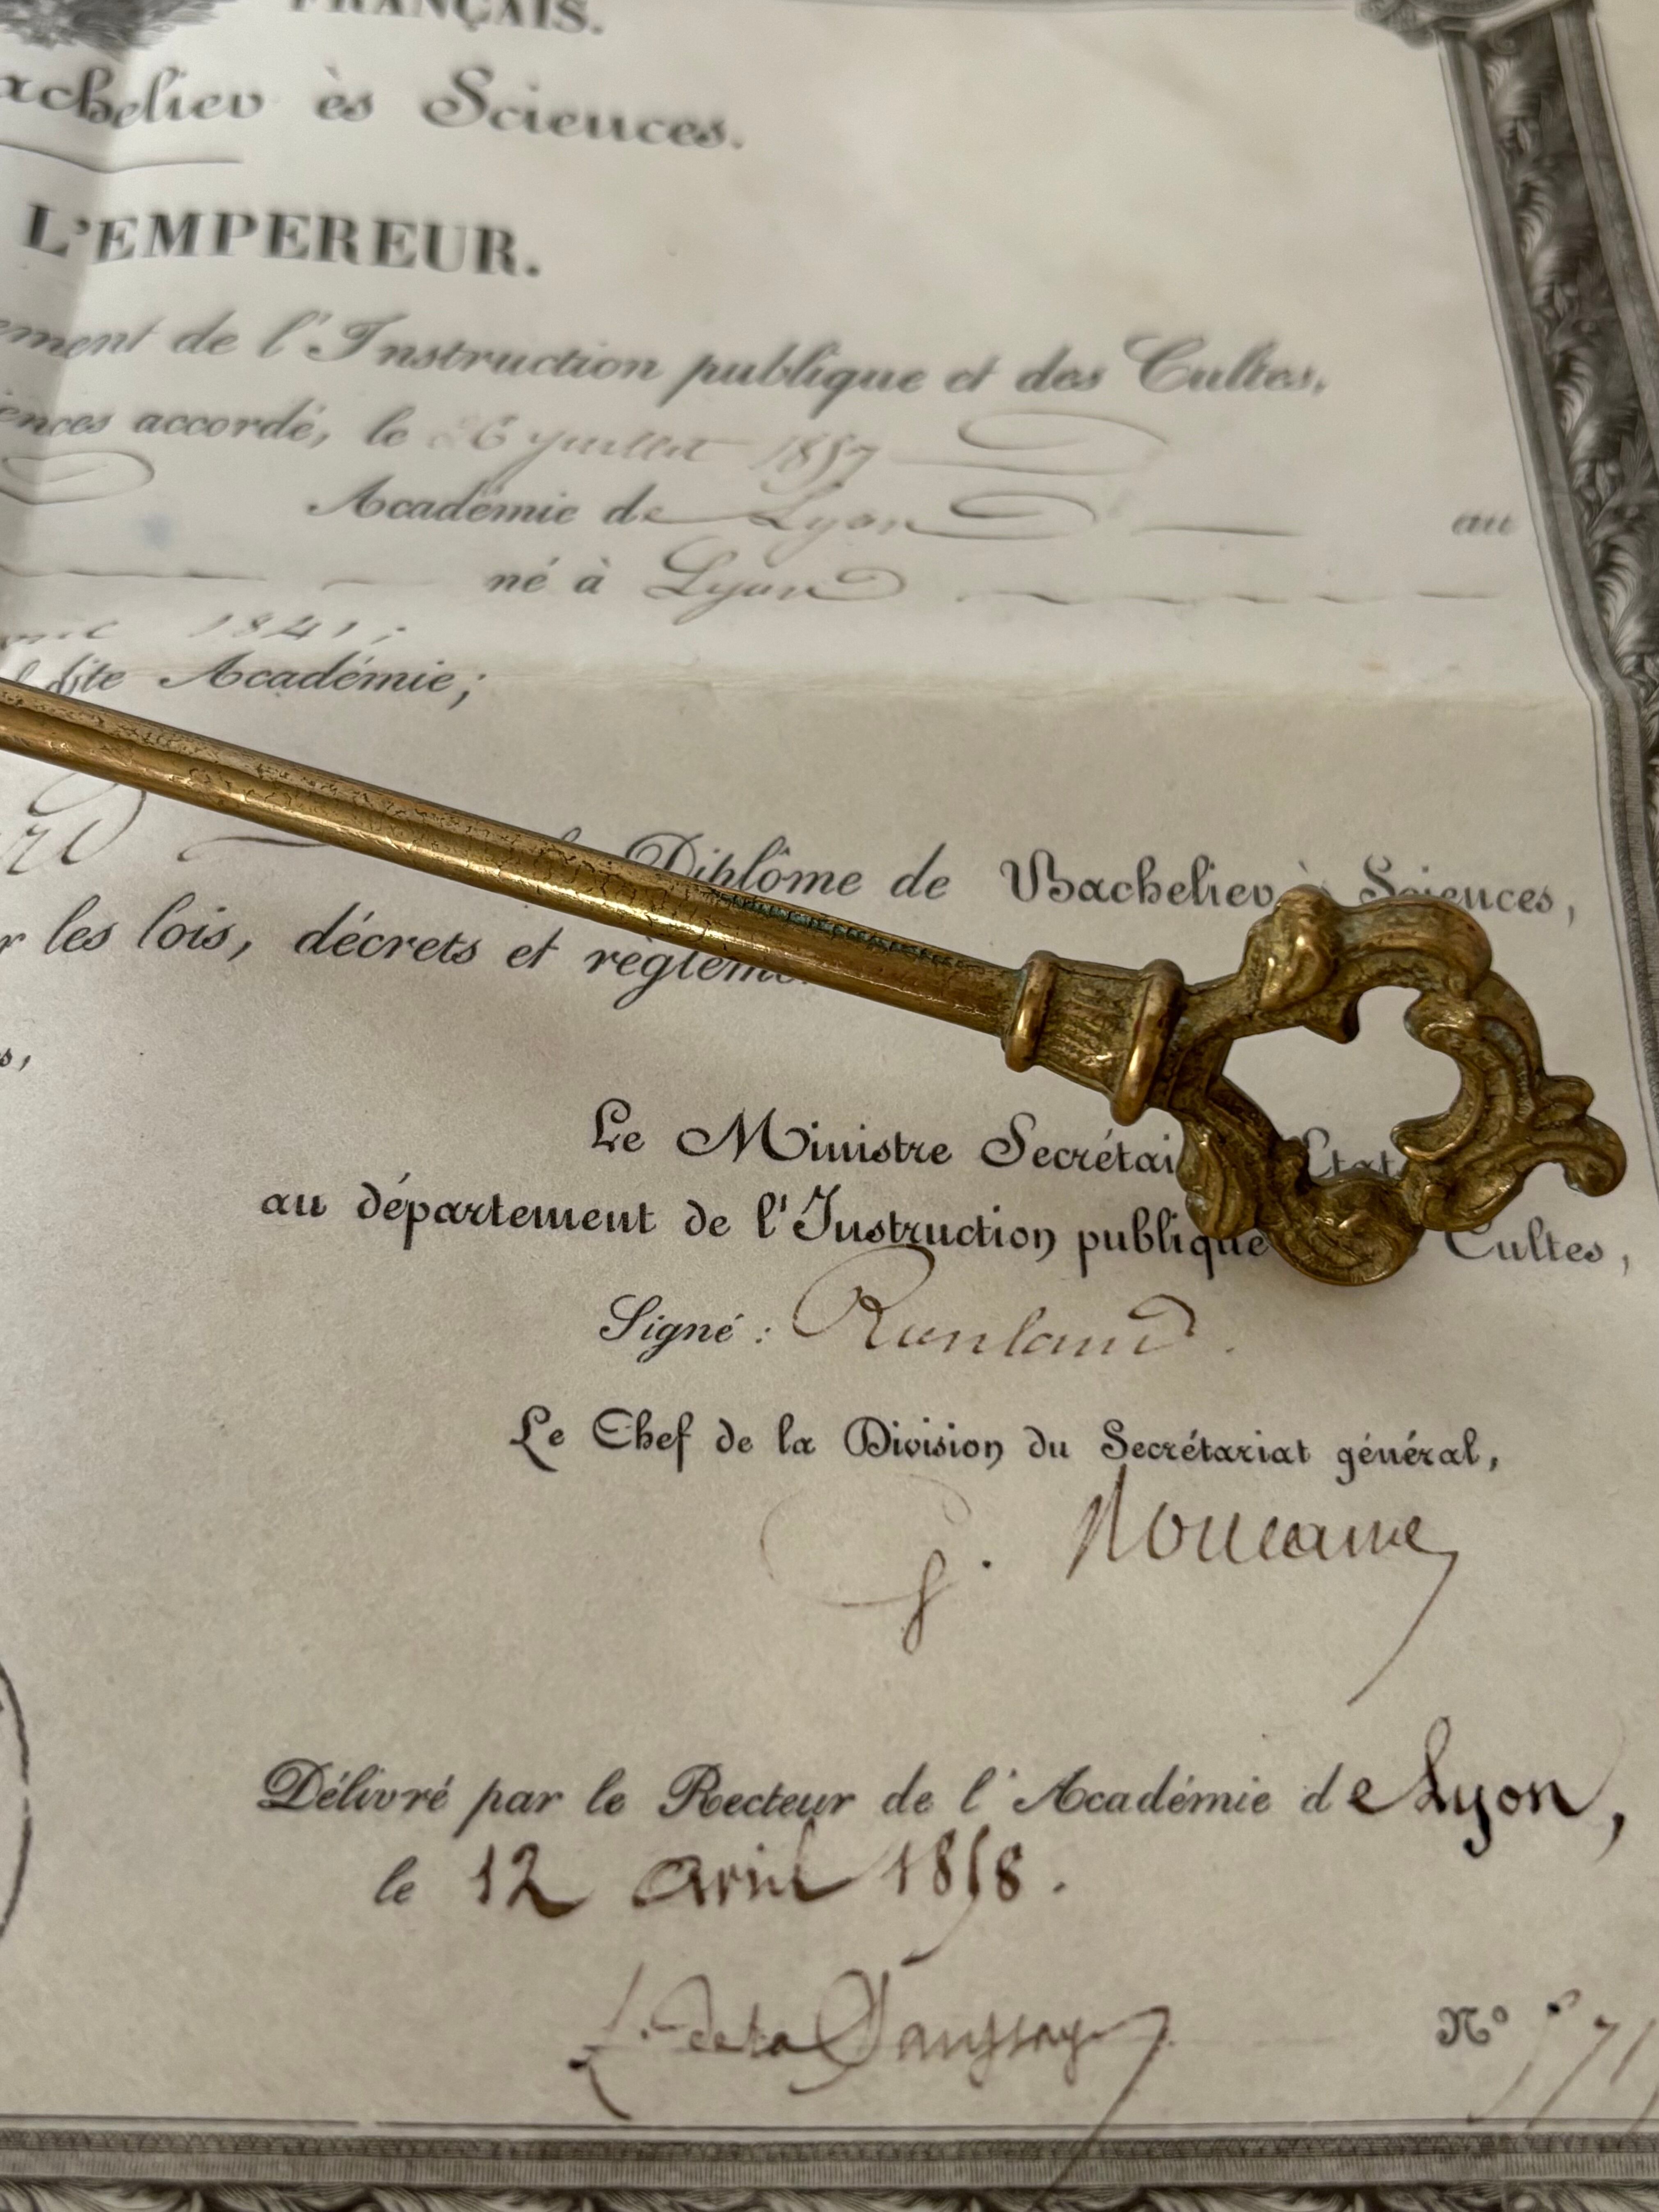 FRANÇAIS.
achelier ès Sciences.
L'EMPEREUR.
ement de l'Instruction publique et des Cultes,
ences accordé, le 26 juillet 1857
Académie de Lyon au
né à Lyon
1841;
dite Académie;
Diplôme de Bachelier ès Sciences,
r les lois, décrets et règleme
s,
Le Ministre Secrétai Etat
au département de l'Instruction publique Cultes,
Signé: Rouland.
Le Chef de la Division du Secrétariat général,
Délivré par le Recteur de l'Académie de Lyon,
le 12 avril 1858.
L. de la Saussaye
N° 571